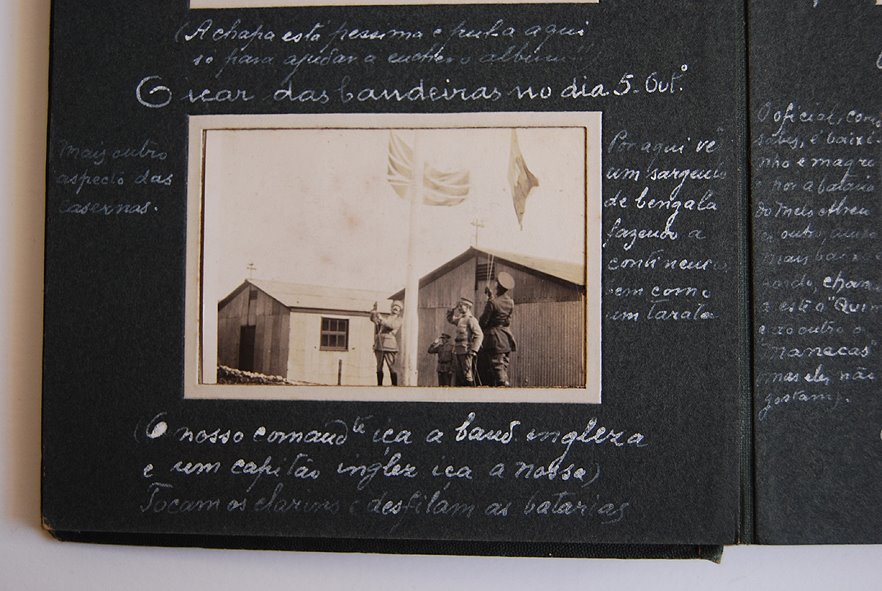 (A chapa está pessima e puz-la aqui
so para ajudar a encher o album!!
O içar das bandeiras no dia 5-Out.º
Mais outro
aspecto das
casernas.
Por aqui vê
um sargento
de bengala
fazendo a
continencia,
bem como
um
(O nosso comand.te iça a band. ingleza
e um capitão inglez iça a nossa)
Tocam os clarins e desfilam as batarias
O oficial, como
sabes, é baixi-
nho e magro
e por a bataria
do
outro,
mais
chama
a este o "Quim"
e ao outro o
"manecas"
mas eles não
gostam).